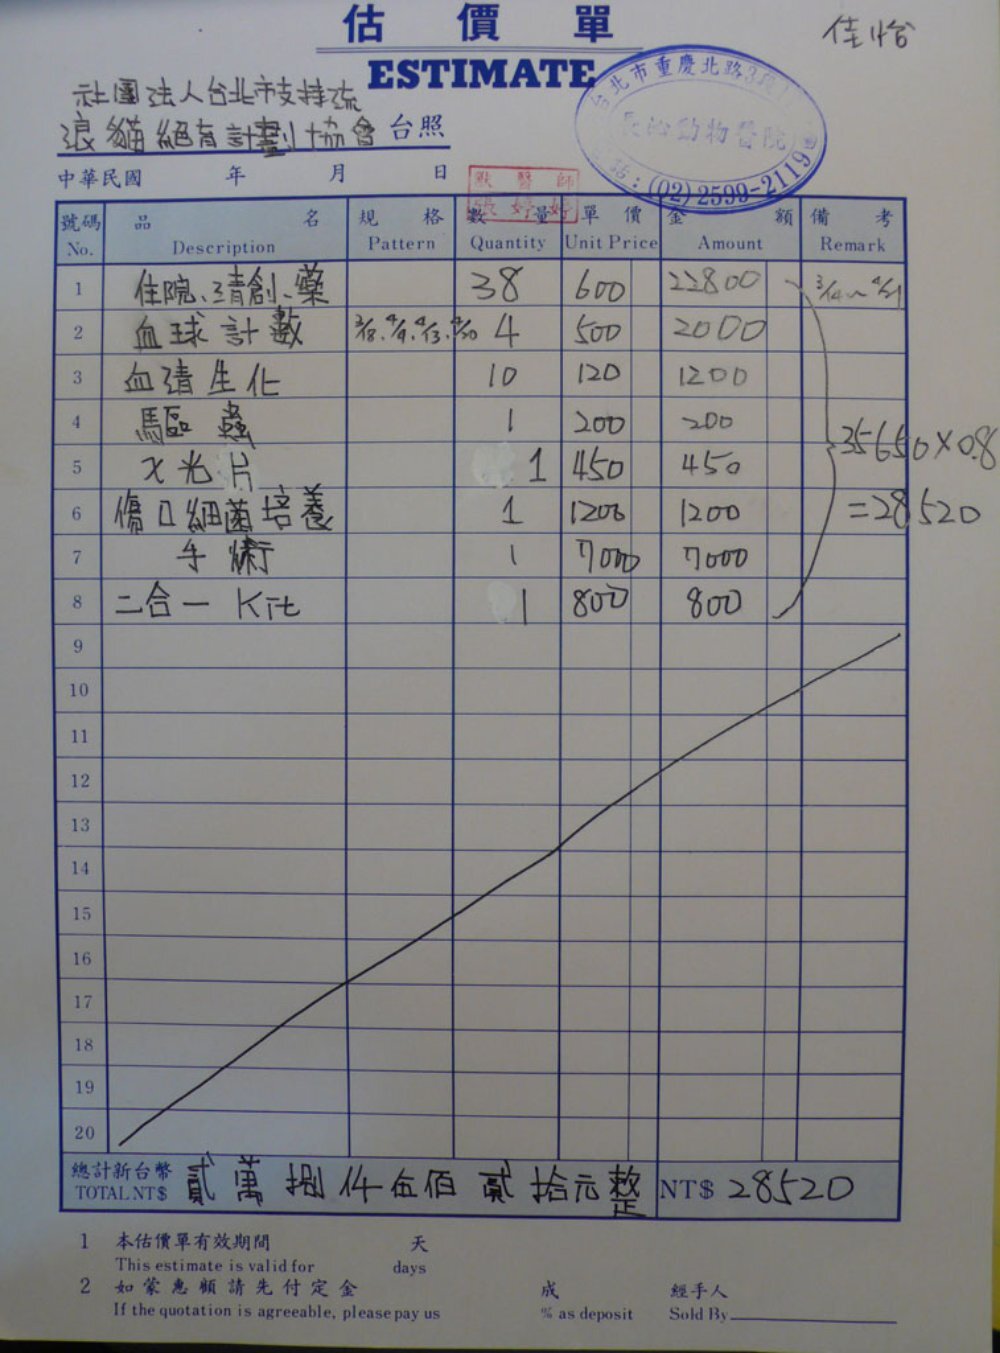 估價單
佳怡
ESTIMATE
社團法人台北市支持流
浪貓絕育計劃協會 台照
台北市重慶北路3段
沁動物醫院
(02)2599-2119
中華民國 年 月 日
獸醫師
張婷婷
號碼 品名 規格 數量 單價 金額 備考
No. Description Pattern Quantity Unit Price Amount Remark
1 住院、清創、藥 38 600 22800 3/14~4/21
2 血球計數 3/18、4/9、4/13、4/20 4 500 2000
3 血清生化 10 120 1200
4 驅蟲 1 200 200
35650×0.8
5 X光片 1 450 450
6 傷口細菌培養 1 1200 1200
=28520
7 手術 1 7000 7000
8 二合一 Kit 1 800 800
9
10
11
12
13
14
15
16
17
18
19
20
總計新台幣 貳萬捌仟伍佰貳拾元整
TOTAL NT$ NT$ 28520
1 本估價單有效期間 天
This estimate is valid for days
2 如蒙惠顧請先付定金 成 經手人
If the quotation is agreeable, please pay us % as deposit Sold By